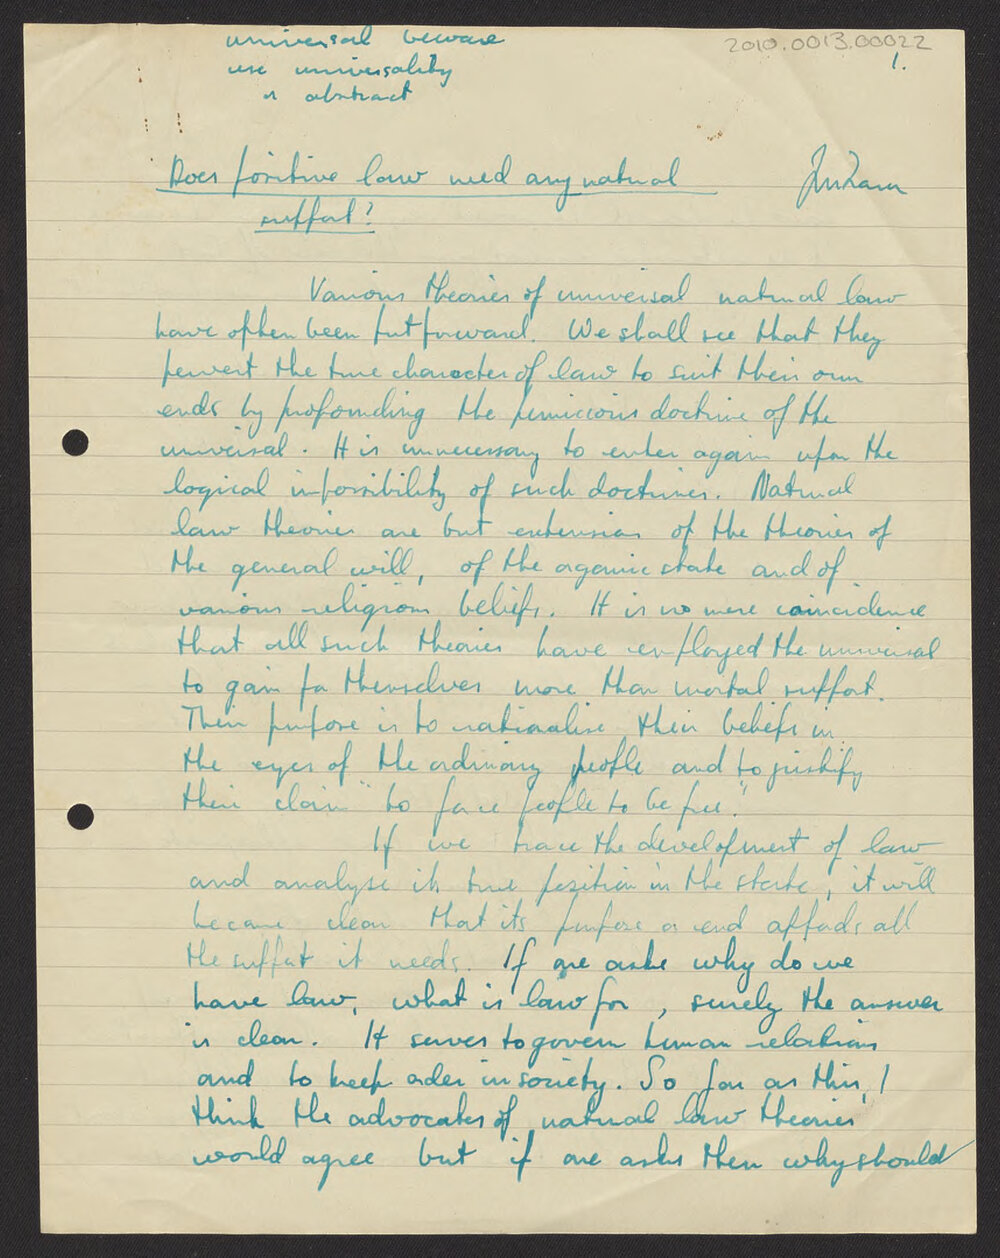 universal beware
use universality
or abstract
2010.0013.00022
1.
Does positive law need any natural
support?
Various theories of universal natural law
have often been put forward. We shall see that they
pervert the true character of law to suit their own
ends by propounding the pernicious doctrine of the
universal. It is unnecessary to enter again upon the
logical impossibility of such doctrines. Natural
law theories are but extensions of the theories of
the general will, of the organic state and of
various religious beliefs. It is no mere coincidence
that all such theories have employed the universal
to gain for themselves more than mortal support.
Their purpose is to rationalise their beliefs in
the eyes of the ordinary people and to justify
their claim "to force people to be free."
If we trace the development of law
and analyse its true position in the state, it will
become clear that its purpose or end affords all
the support it needs. If one asks why do we
have law, what is law for, surely the answer
is clear. It serves to govern human relations
and to keep order in society. So far as this, I
think the advocates of natural law theories
would agree but if one asks then why should